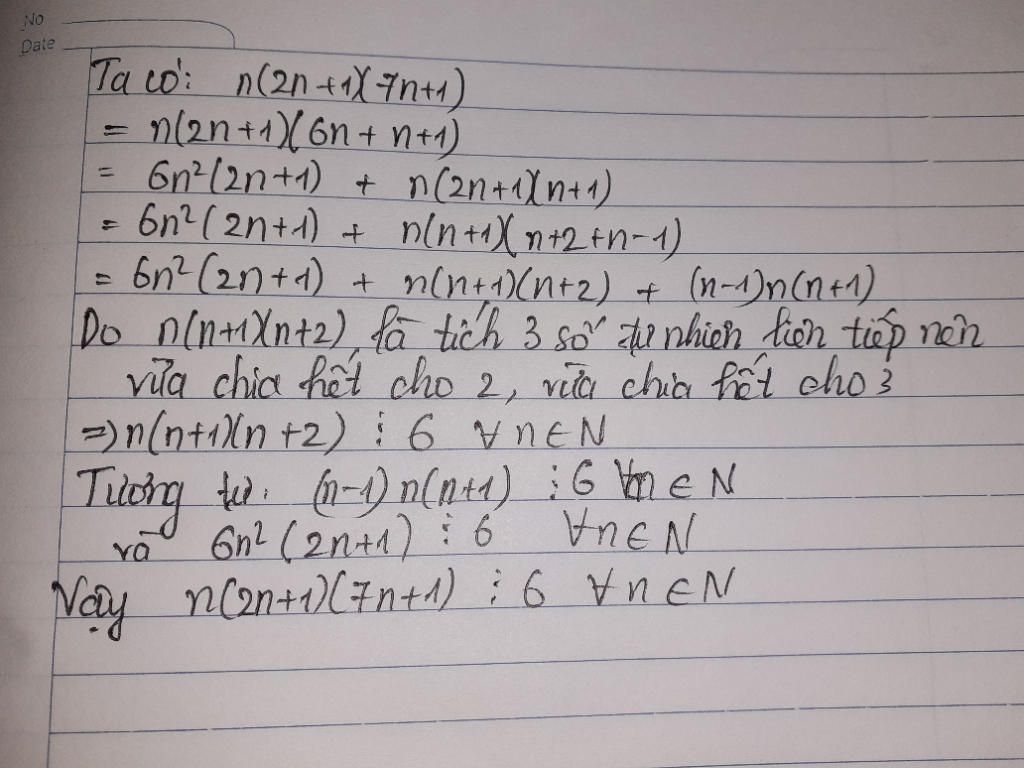 No
Date
Ta có: n(2n+1)(7n+1)
= n(2n+1)(6n + n+1)
= 6n²(2n+1) + n(2n+1)(n+1)
= 6n²(2n+1) + n(n+1)(n+2+n-1)
= 6n²(2n+1) + n(n+1)(n+2) + (n-1)n(n+1)
Do n(n+1)(n+2) là tích 3 số tự nhiên liên tiếp nên
vừa chia hết cho 2, vừa chia hết cho 3
=> n(n+1)(n+2) ⋮ 6 ∀ n ∈ N
Tương tự. (n-1)n(n+1) ⋮ 6 ∀n ∈ N
và 6n²(2n+1) ⋮ 6 ∀n ∈ N
Vậy n(2n+1)(7n+1) ⋮ 6 ∀ n ∈ N